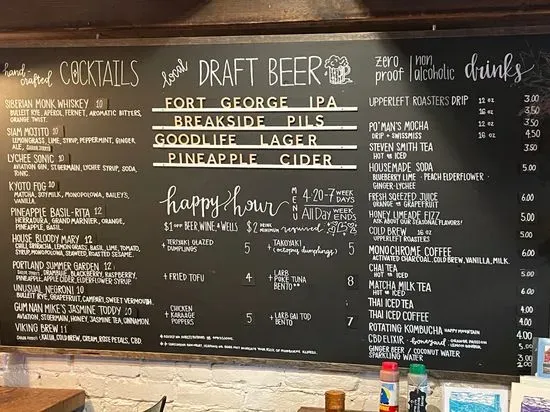 hand-crafted COCKTAILS
SIBERIAN MONK WHISKEY 10
BULLEIT RYE, APEROL, FERNET, AROMATIC BITTERS,
ORANGE TWIST.
SIAM MOJITO 10
LEMONGRASS, LIME, SYRUP, PEPPERMINT, GINGER
ALE,
LYCHEE SONIC 10
AVIATION GIN, ST.GERMAIN, LYCHEE SYRUP, SODA,
TONIC.
KYOTO FOG 10
MATCHA, SOYMILK, MONOPOLOWA, BAILEYS,
VANILLA.
PINEAPPLE BASIL-RITA 12
HERRADURA, GRAND MARNIER, ORANGE,
PINEAPPLE, BASIL.
HOUSE BLOODY MARY 12
CHILI SRIRACHA, LEMONGRASS, BASIL, LIME, TOMATO,
SYRUP, MONOPOLOWA, SEAWEED, ROASTED SESAME.
PORTLAND SUMMER GARDEN 12
DRAMBUIE, BLACKBERRY, RASPBERRY,
PINEAPPLE, APPLE CIDER, ELDERFLOWER SYRUP.
UNUSUAL NEGRONI 10
BULLEIT RYE, GRAPEFRUIT, CAMPARI, SWEET VERMOUTH.
GUM NAN MIKE'S JASMINE TODDY 10
AVIATION, ST.GERMAIN, HONEY, JASMINE TEA, CINNAMON.
VIKING BREW 11
KALUA, COLD BREW, CREAM, ROSE PETALS, CBD.
local DRAFT BEER
FORT GEORGE IPA
BREAKSIDE PILS
GOODLIFE LAGER
PINEAPPLE CIDER
happy hour MENU 4:20-7 WEEK DAYS
All Day WEEK ENDS
$1 OFF BEER WINE & WELLS $2 DRINK MINIMUM required
+ TERIYAKI GLAZED DUMPLINGS 5
+ TAKOYAKI (octopus dumplings) 5
+ FRIED TOFU 4
+ LARB POKE TUNA BENTO 8
+ CHICKEN KARAAGE POPPERS 5
+ LARB GAI TOD BENTO 7
zero proof | non alcoholic drinks
UPPERLEFT ROASTERS DRIP 12 OZ 3.00
16 OZ 3.50
PO'MAN'S MOCHA 12 OZ 3.50
DRIP + SWISSMISS 16 OZ 4.50
STEVEN SMITH TEA 3.50
HOT OR ICED
HOUSEMADE SODA 5.00
BLUEBERRY LIME · PEACH ELDERFLOWER ·
GINGER-LYCHEE
FRESH SQEEZED JUICE 6.00
ORANGE OR GRAPEFRUIT
HONEY LIMEADE FIZZ 5.00
ASK ABOUT OUR SEASONAL FLAVORS!
COLD BREW 16 OZ 5.00
UPPERLEFT ROASTERS
MONOCHROME COFFEE 6.00
ACTIVATED CHARCOAL, COLD BREW, VANILLA, MILK.
CHAI TEA 5.00
HOT OR ICED
MATCHA MILK TEA 6.00
HOT OR ICED
THAI ICED TEA 4.00
THAI ICED COFFEE 4.00
ROTATING KOMBUCHA HAPPY MOUNTAIN 6.00
CBD ELIXIR
GINGER BEER / COCONUT WATER
SPARKLING WATER 2.00